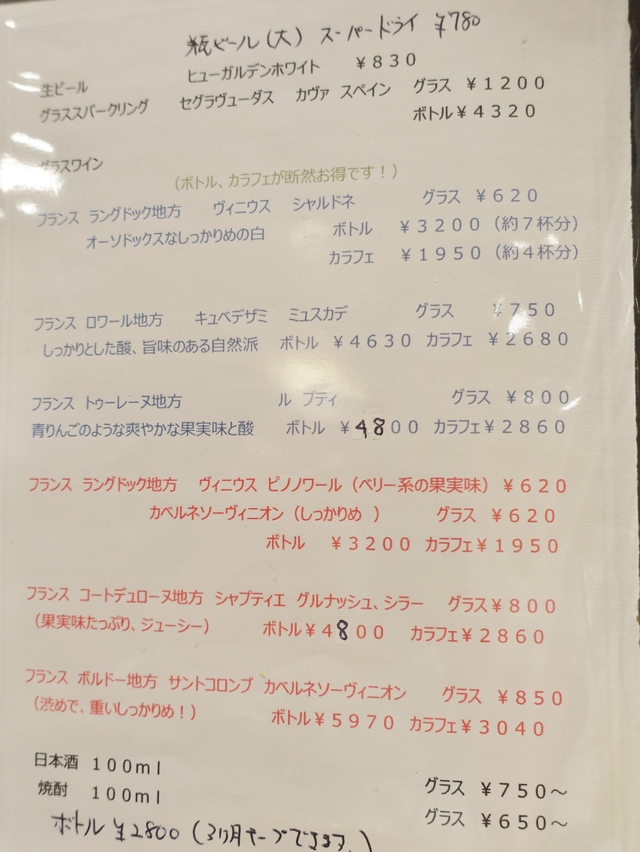 瓶ビール(大) スーパードライ ¥780
生ビール ヒューガルデンホワイト ¥830
グラススパークリング セグラヴューダス カヴァ スペイン グラス ¥1200
ボトル¥4320
グラスワイン
(ボトル、カラフェが断然お得です！)
フランス ラングドック地方 ヴィニウス シャルドネ グラス ¥620
オーソドックスなしっかりめの白 ボトル ¥3200(約7杯分)
カラフェ ¥1950(約4杯分)
フランス ロワール地方 キュベデザミ ミュスカデ グラス ¥750
しっかりとした酸、旨味のある自然派 ボトル ¥4630 カラフェ ¥2680
フランス トゥーレーヌ地方 ル プティ グラス ¥800
青りんごのような爽やかな果実味と酸 ボトル ¥4800 カラフェ¥2860
フランス ラングドック地方 ヴィニウス ピノノワール(ベリー系の果実味) ¥620
カベルネソーヴィニオン(しっかりめ ) グラス ¥620
ボトル ¥3200 カラフェ¥1950
フランス コートデュローヌ地方 シャプティエ グルナッシュ、シラー グラス¥800
(果実味たっぷり、ジューシー) ボトル¥4800 カラフェ¥2860
フランス ボルドー地方 サントコロンブ カベルネソーヴィニオン グラス ¥850
(渋めで、重いしっかりめ！) ボトル¥5970 カラフェ¥3040
日本酒 100ml グラス ¥750〜
焼酎 100ml グラス ¥650〜
ボトル ¥2800(3ヶ月キープできます。)